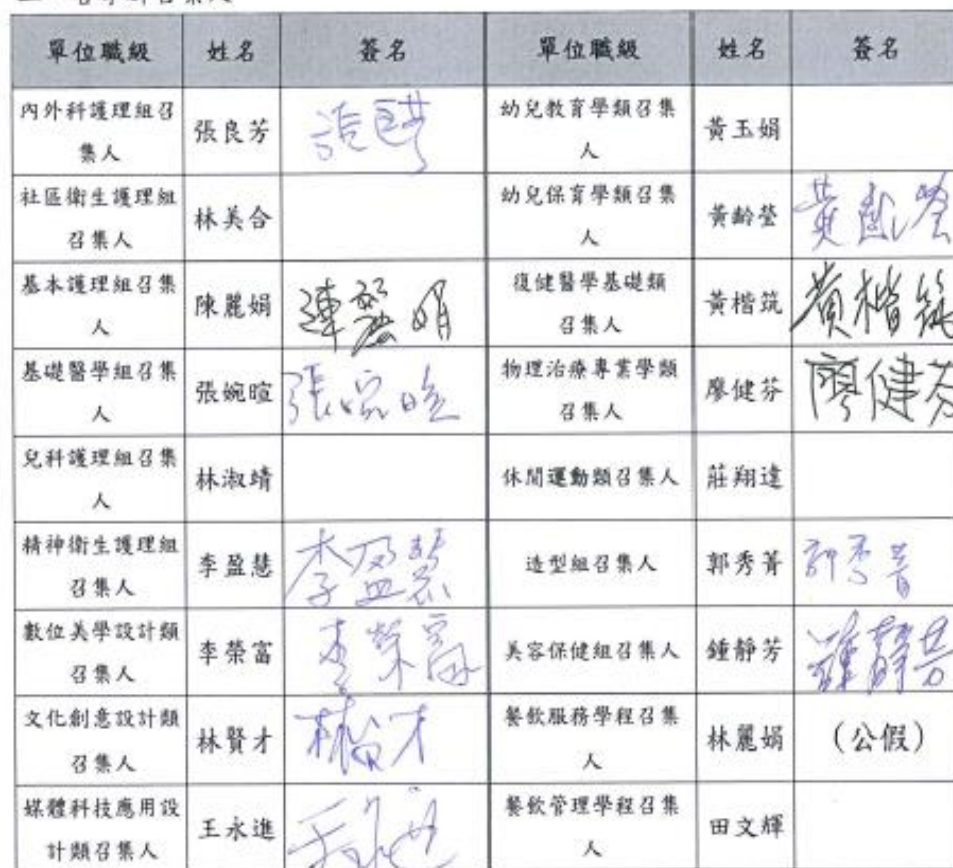 單位職級 姓名 簽名 單位職級 姓名 簽名
內外科護理組召集人 張良芳 幼兒教育學類召集人 黃玉娟
社區衛生護理組召集人 林美合 幼兒保育學類召集人 黃齡瑩 黃齡瑩
基本護理組召集人 陳麗娟 陳麗娟 復健醫學基礎類召集人 黃楷筑 黃楷筑
基礎醫學組召集人 張婉暄 張婉暄 物理治療專業學類召集人 廖健芬 廖健芬
兒科護理組召集人 林淑靖 休閒運動類召集人 莊翔達
精神衛生護理組召集人 李盈慧 李盈慧 造型組召集人 郭秀菁 郭秀菁
數位美學設計類召集人 李榮富 李榮富 美容保健組召集人 鍾靜芳 鍾靜芳
文化創意設計類召集人 林賢才 林賢才 餐飲服務學程召集人 林麗娟 (公假)
媒體科技應用設計類召集人 王永進 餐飲管理學程召集人 田文輝